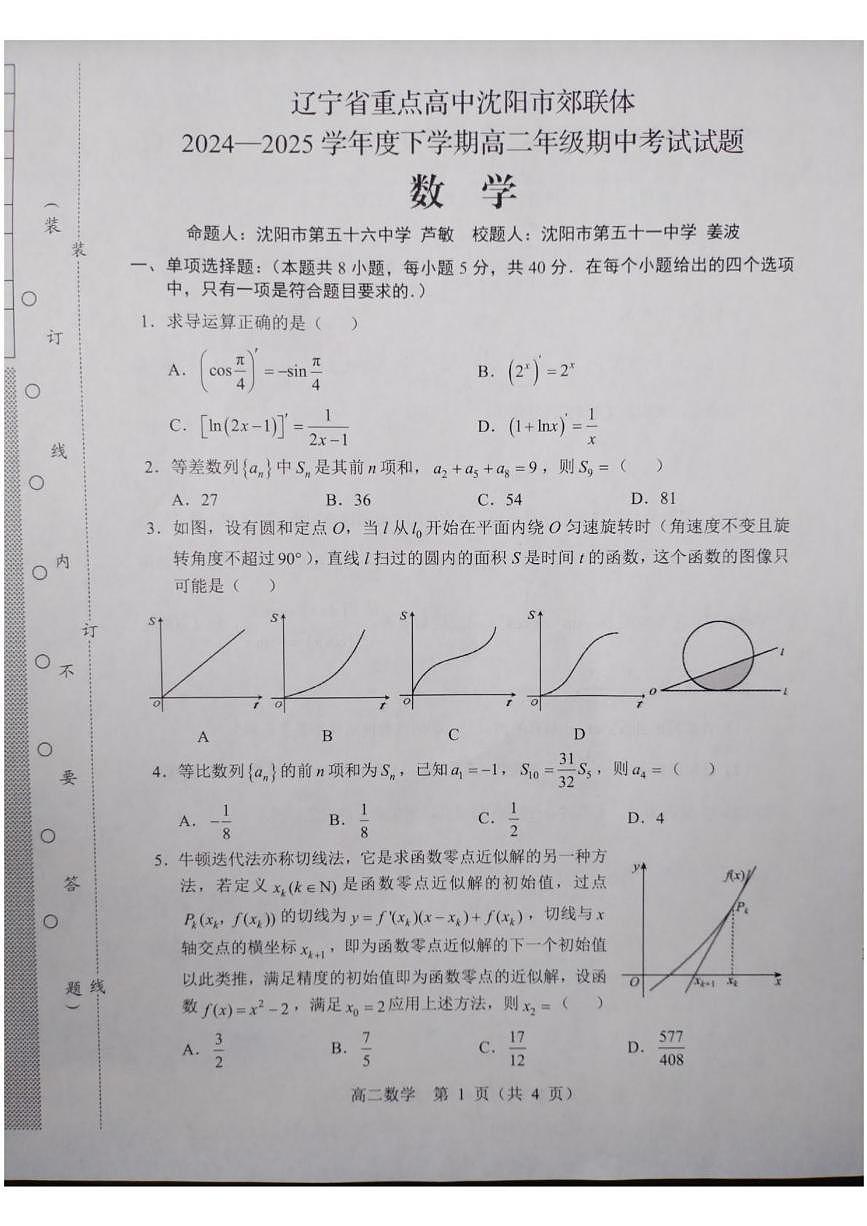 辽宁省重点高中沈阳市郊联体
2024—2025 学年度下学期高二年级期中考试试题
数 学
命题人：沈阳市第五十六中学 芦敏 校题人：沈阳市第五十一中学 姜波
一、单项选择题：（本题共 8 小题，每小题 5 分，共 40 分．在每个小题给出的四个选项
中，只有一项是符合题目要求的．）
1．求导运算正确的是（ ）
A．(cos π/4)′ = −sin π/4 B．(2^x)′ = 2^x
C．[ln(2x−1)]′ = 1/(2x−1) D．(1+lnx)′ = 1/x
2．等差数列{a_n}中 S_n 是其前 n 项和，a_2 + a_5 + a_8 = 9，则 S_9 =（ ）
A．27 B．36 C．54 D．81
3．如图，设有圆和定点 O，当 l 从 l_0 开始在平面内绕 O 匀速旋转时（角速度不变且旋
转角度不超过 90°），直线 l 扫过的圆内的面积 S 是时间 t 的函数，这个函数的图像只
可能是（ ）
S t O S t O S t O S t O O l l
A B C D
4．等比数列{a_n}的前 n 项和为 S_n，已知 a_1 = −1，S_10 = 31/32 S_5，则 a_4 =（ ）
A．−1/8 B．1/8 C．1/2 D．4
5．牛顿迭代法亦称切线法，它是求函数零点近似解的另一种方
法，若定义 x_k(k∈N) 是函数零点近似解的初始值，过点
P_k(x_k，f(x_k)) 的切线为 y = f′(x_k)(x − x_k) + f(x_k)，切线与 x
轴交点的横坐标 x_{k+1}，即为函数零点近似解的下一个初始值
以此类推，满足精度的初始值即为函数零点的近似解，设函
数 f(x) = x² − 2，满足 x_0 = 2 应用上述方法，则 x_2 =（ ）
y f(x) P_k O x_{k+1} x_k x
A．3/2 B．7/5 C．17/12 D．577/408
高二数学 第 1 页（共 4 页）
（装 订 线 内 不 要 答 题）
装 订 线